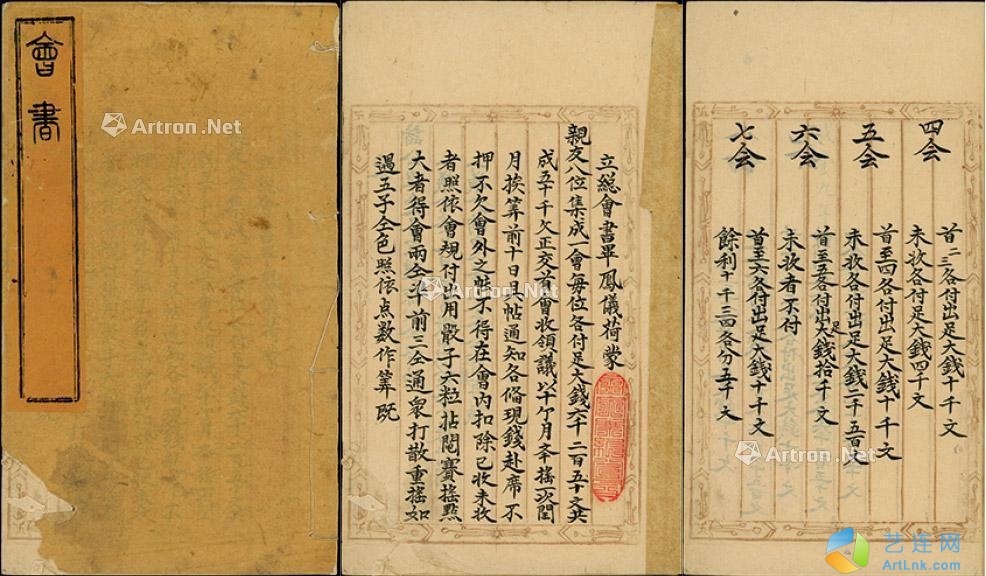 會書
立總會書畢鳳儀荷蒙
親友八位集成一會每位各付足大錢六千二百五十文共
成五千千文正交首會收領議以十个月搖一次閏
月挨筭前十日具帖通知各俻現錢赴席不
押不欠會外之帳不得在會内扣除已收未收
者照依會規付出用骰子六粒拈鬮賽搖點
大者得會兩仝斗前三仝通衆打散重搖如
遇五子仝色照依点数作筭既
四会
首二三各付出足大錢十千文
未收各付足大錢四千文
五会
首至四各付出足大錢十千文
未收各付出足大錢二千五百文
六会
首至五各付出足大錢拾千文
未收者不付
七会
首至六各付出足大錢十千文
餘利十千三四各分五千文
Artron.Net
Artron.Net
Artron.Net
艺连网
ArtLnk.com